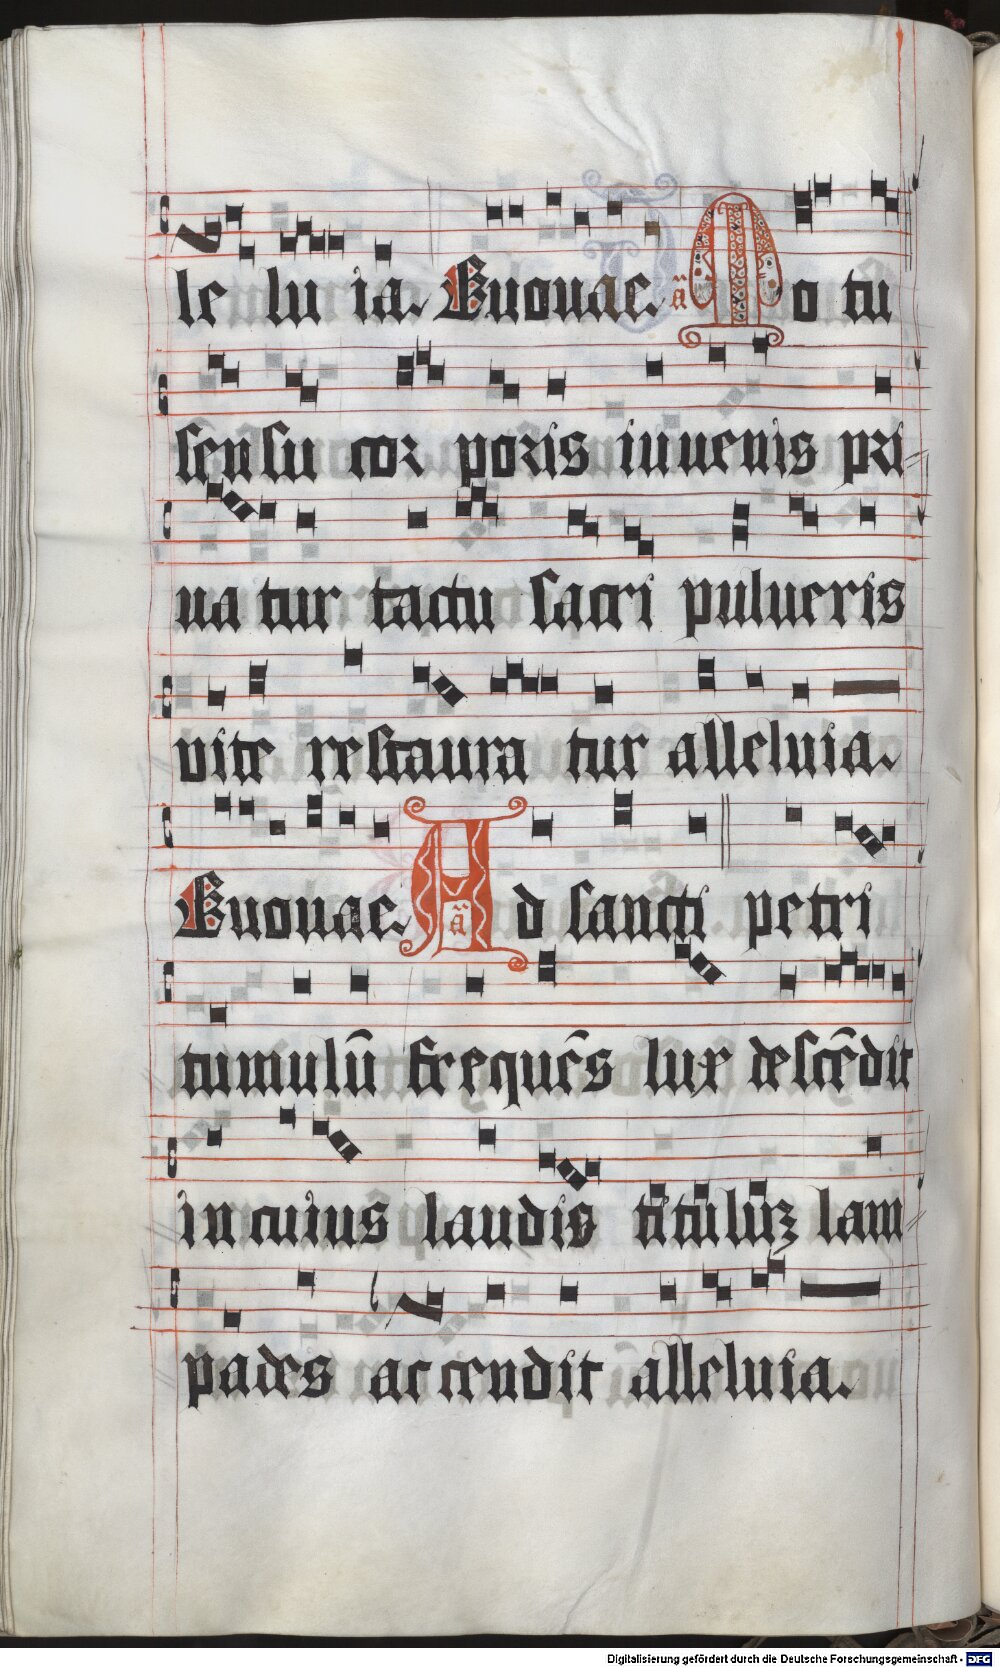 le lu ia. Euouae. ã Mo tu
sensu cor poris iuuenis pri-
ua tur tactu sacri pulueris
vite restaura tur alleluia.
Euouae. ã Ad sancti petri
tumulū frequēs lux descēdit
in cuius laudis titulūꝫ lam-
pades accendit alleluia.
Digitalisierung gefördert durch die Deutsche Forschungsgemeinschaft - DFG